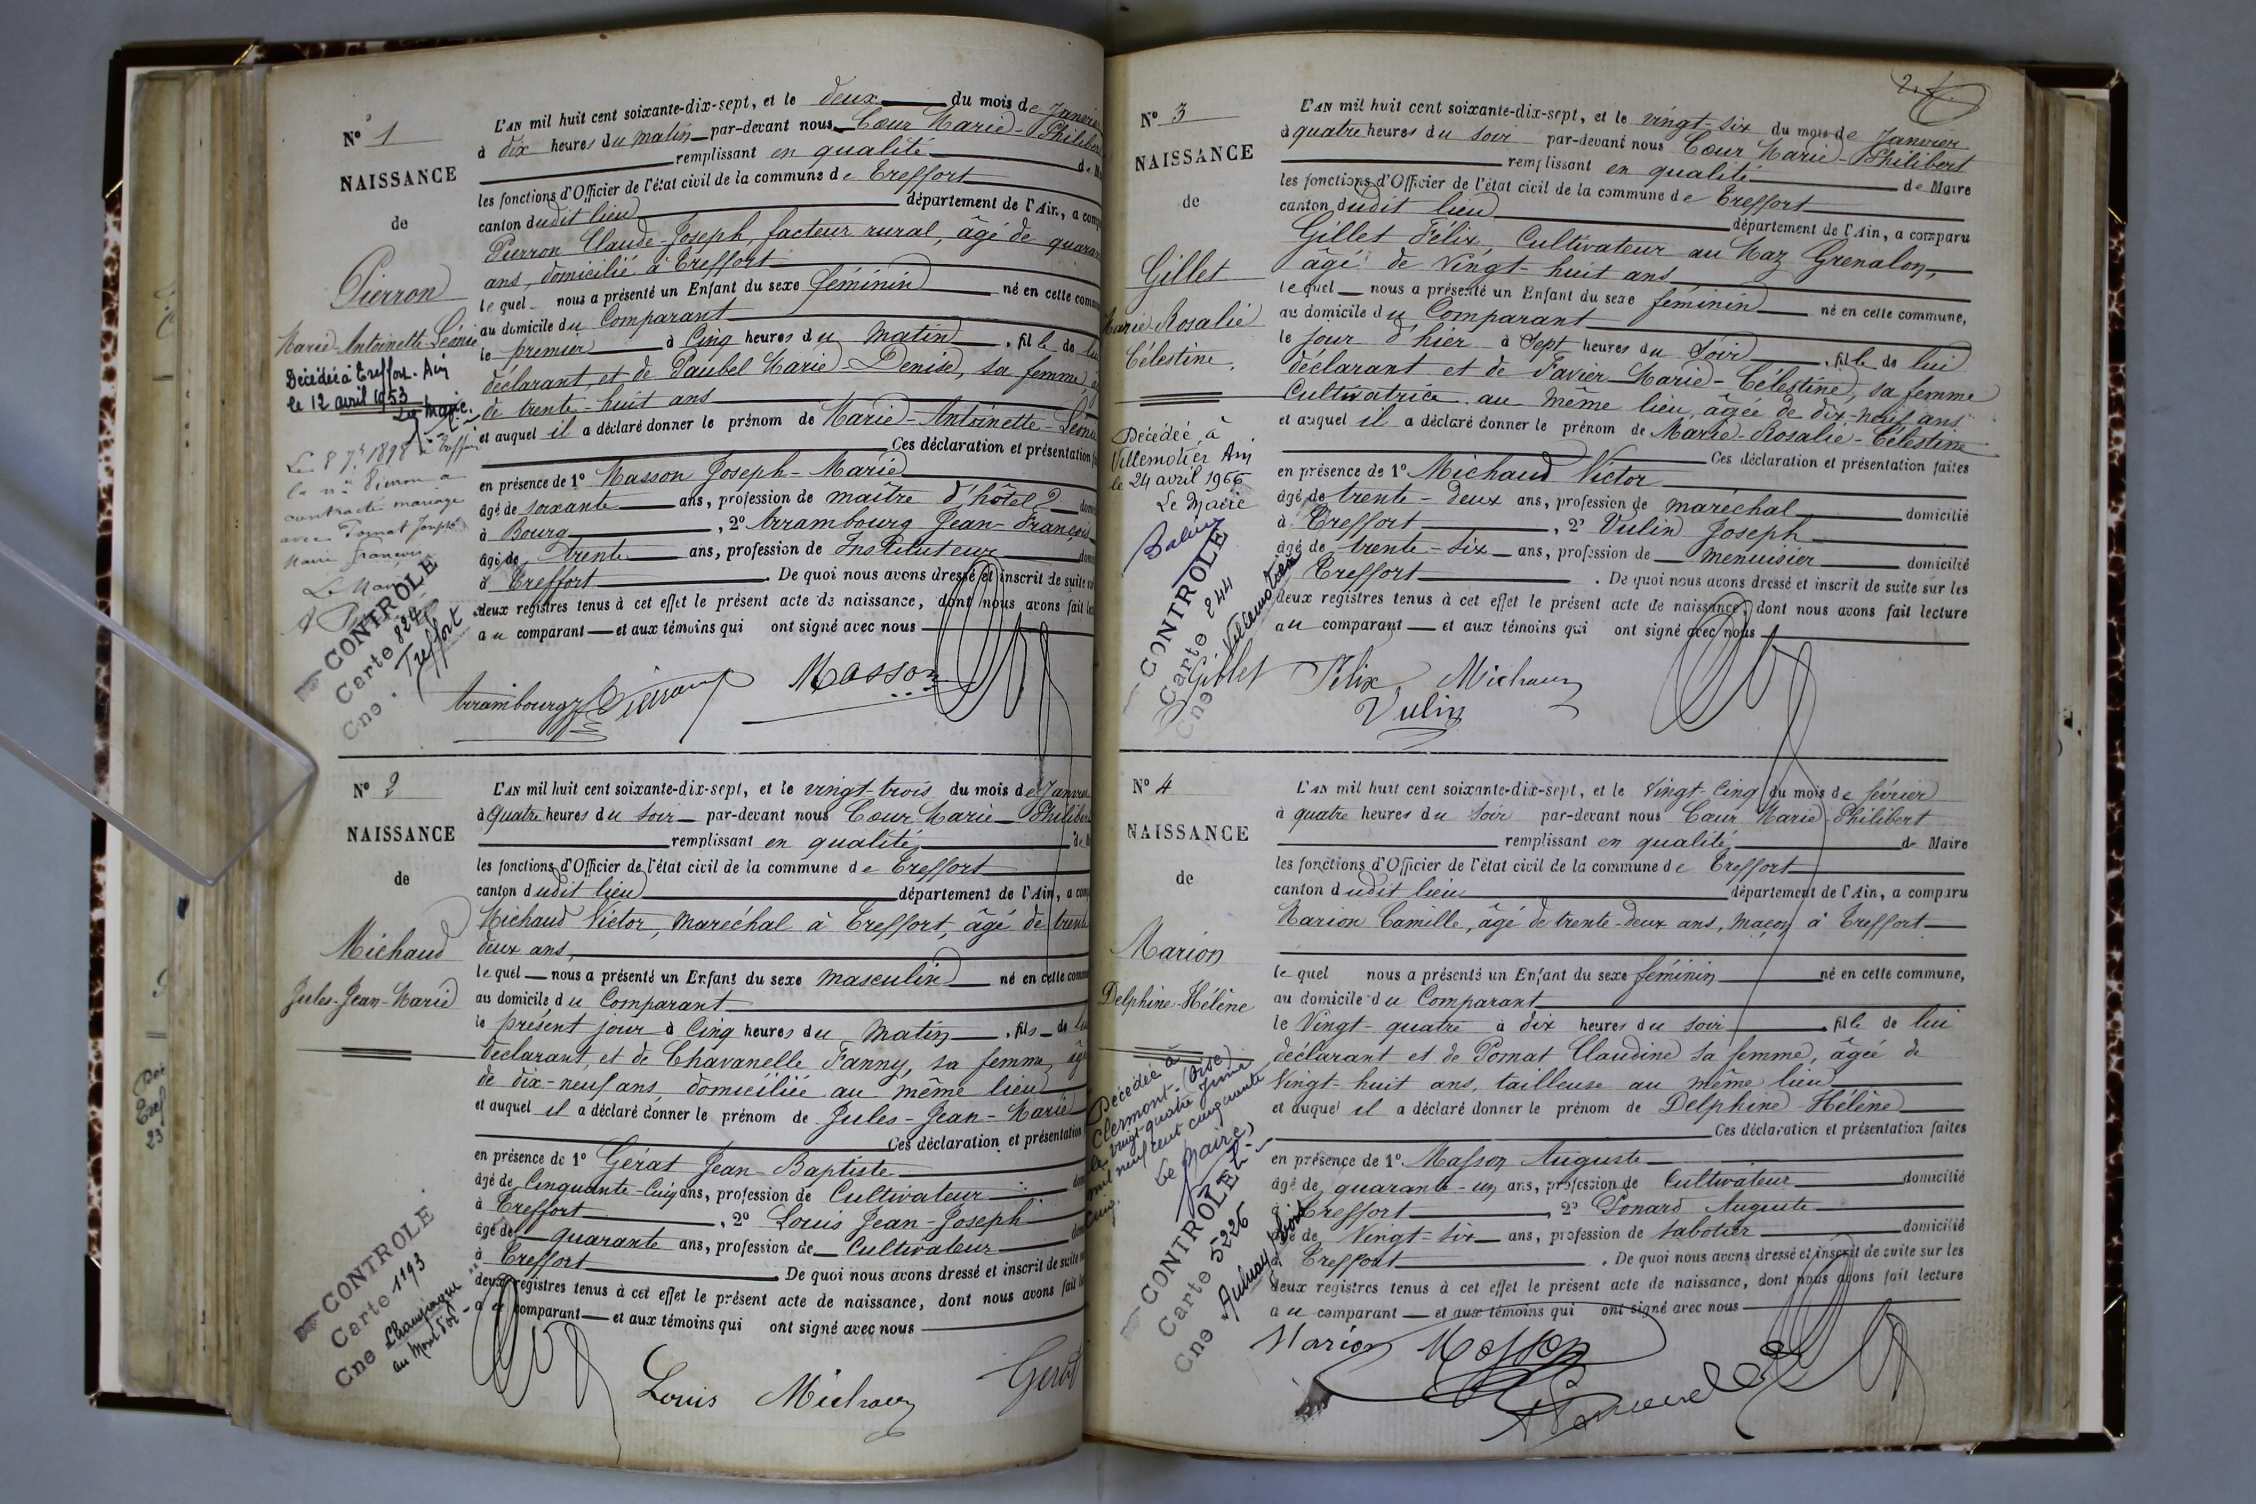 N° 1
NAISSANCE
de
Pierron
Marie-Antoinette-Léonie
Décédée à Treffort. Ain
le 12 avril 1953
Le Maire.
Le 8 7bre 1898 à Treffort
la née Pierron a
contracté mariage
avec Pomat Joseph
Marie François
Le Maire
CONTROLE
Carte 824
Cne. Treffort
L'AN mil huit cent soixante-dix-sept, et le deux du mois de Janvier
à dix heures du matin par-devant nous Cœur Marie-Philibert
remplissant en qualité de
les fonctions d'Officier de l'état civil de la commune de Treffort
canton dudit lieu département de l'Ain, a
Pierron Claude-Joseph, facteur rural, âgé de
ans, domicilié à Treffort
lequel nous a présenté un Enfant du sexe féminin né en cette
au domicile du Comparant
le premier à Cinq heures du matin, fille de lui
déclarant, et de Paubel Marie-Denise, sa femme
de trente-huit ans
et auquel il a déclaré donner le prénom de Marie-Antoinette-Léonie
Ces déclaration et présentation
en présence de 1° Masson Joseph-Marie
âgé de soixante ans, profession de maître d'hôtel
à Bourg, 2° Arrambourg Jean-François
âgé de trente ans, profession de Instituteur
à Treffort. De quoi nous avons dressé et inscrit de suite
deux registres tenus à cet effet le présent acte de naissance, dont nous avons fait
au comparant et aux témoins qui ont signé avec nous
Arrambourg Pierron Masson
N° 2
NAISSANCE
de
Michaud
Jules-Jean-Marie
CONTROLE
Carte 1193
Cne Champagne
au Mont d'or
L'AN mil huit cent soixante-dix-sept, et le vingt-trois du mois de Janvier
à quatre heures du soir par-devant nous Cœur Marie-Philibert
remplissant en qualité de
les fonctions d'Officier de l'état civil de la commune de Treffort
canton dudit lieu département de l'Ain, a
Michaud Victor, maréchal à Treffort, âgé de trente
deux ans,
lequel nous a présenté un Enfant du sexe masculin né en cette
au domicile du Comparant
le présent jour à Cinq heures du matin, fils de lui
déclarant, et de Chavanelle Fanny, sa femme, âgée
de dix-neuf ans, domiciliée au même lieu
et auquel il a déclaré donner le prénom de Jules-Jean-Marie
Ces déclaration et présentation
en présence de 1° Gérat Jean-Baptiste
âgé de Cinquante-Cinq ans, profession de Cultivateur
à Treffort, 2° Louis Jean-Joseph
âgé de quarante ans, profession de Cultivateur
à Treffort. De quoi nous avons dressé et inscrit de suite
deux registres tenus à cet effet le présent acte de naissance, dont nous avons fait
au comparant et aux témoins qui ont signé avec nous
Louis Michaud Gérat
N° 3
NAISSANCE
de
Gillet
Marie-Rosalie
Célestine.
Décédée à
Villemotier Ain
le 24 avril 1966
Le Maire
CONTROLE
Carte 844
Cne Villemotier
L'AN mil huit cent soixante-dix-sept, et le vingt-six du mois de Janvier
à quatre heures du soir par-devant nous Cœur Marie-Philibert
remplissant en qualité de Maire
les fonctions d'Officier de l'état civil de la commune de Treffort
canton dudit lieu département de l'Ain, a comparu
Gillet Félix, Cultivateur au Maz Grenalon,
âgé de Vingt-huit ans
lequel nous a présenté un Enfant du sexe féminin né en cette commune,
au domicile du Comparant
le jour d'hier à Sept heures du Soir, fille de lui
déclarant et de Favier Marie-Célestine, sa femme
Cultivatrice au même lieu, âgée de dix-neuf ans
et auquel il a déclaré donner le prénom de Marie-Rosalie-Célestine
Ces déclaration et présentation faites
en présence de 1° Michaud Victor
âgé de trente-deux ans, profession de maréchal domicilié
à Treffort, 2° Vulin Joseph
âgé de trente-six ans, profession de menuisier domicilié
à Treffort. De quoi nous avons dressé et inscrit de suite sur les
deux registres tenus à cet effet le présent acte de naissance, dont nous avons fait lecture
au comparant et aux témoins qui ont signé avec nous
Gillet Félix Michaud
Vulin
N° 4
NAISSANCE
de
Marion
Delphine-Hélène
Décédée à
Clermont-(Oise)
le vingt-quatre Juin
mil neuf cent cinquante
cinq.
Le Maire,
CONTROLE
Carte 5226
Cne Aulnay s/bois
L'AN mil huit cent soixante-dix-sept, et le Vingt-Cinq du mois de février
à quatre heures du soir par-devant nous Cœur Marie-Philibert
remplissant en qualité de Maire
les fonctions d'Officier de l'état civil de la commune de Treffort
canton dudit lieu département de l'Ain, a comparu
Marion Camille, âgé de trente-deux ans, maçon à Treffort
lequel nous a présenté un Enfant du sexe féminin né en cette commune,
au domicile du Comparant
le Vingt-quatre à dix heures du soir, fille de lui
déclarant et de Pomat Claudine sa femme, âgée de
Vingt-huit ans, tailleuse au même lieu
et auquel il a déclaré donner le prénom de Delphine Hélène
Ces déclaration et présentation faites
en présence de 1° Masson Auguste
âgé de quarante-un ans, profession de Cultivateur domicilié
à Treffort, 2° Ponard Auguste
âgé de Vingt-six ans, profession de sabotier domicilié
à Treffort. De quoi nous avons dressé et inscrit de suite sur les
deux registres tenus à cet effet le présent acte de naissance, dont nous avons fait lecture
au comparant et aux témoins qui ont signé avec nous
Marion Masson